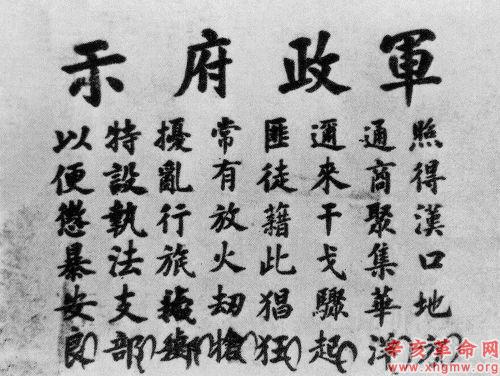 軍政府示
照得漢口地方
通商聚集華洋
邇來干戈驟起
匪徒藉此猖狂
常有放火劫搶
擾亂行旅
特設執法支部
以便懲暴安良
辛亥革命网
www.xhgmw.org